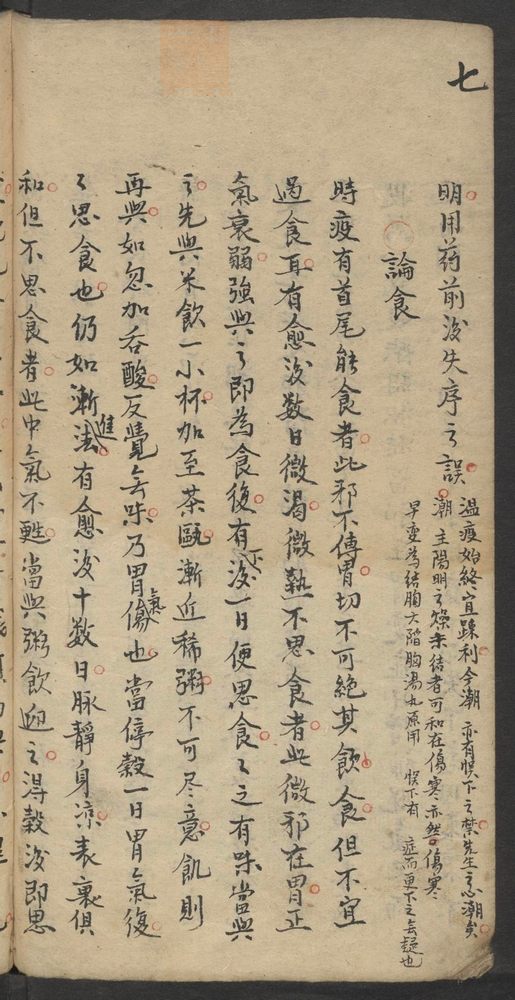 七
明用药前後失序之誤
温疫始終宜疎利今潮 亦有悞下之禁先生忘潮矣
潮主陽明之燥未結者可和在傷寒亦然傷寒
早变為結胸大陷胸湯丸原用 悞下有 症而更下之去疑也
論食
時疫有首尾能食者此邪不傳胃切不可絕其飲食但不宜
過食耳有愈後数日微渴微熱不思食者此微邪在胃正
氣衰弱強與之即為食復有下後一日便思食之之有味當與
之先與米飲一小杯加至茶甌漸近稀粥不可尽意飢則
再與如忽加吞酸反覺無味乃胃氣傷也當停穀一日胃氣復
之思食也仍如漸進法有愈後十数日脉靜身凉表裏俱
和但不思食者此中氣不甦當與粥飲迎之得穀後即思